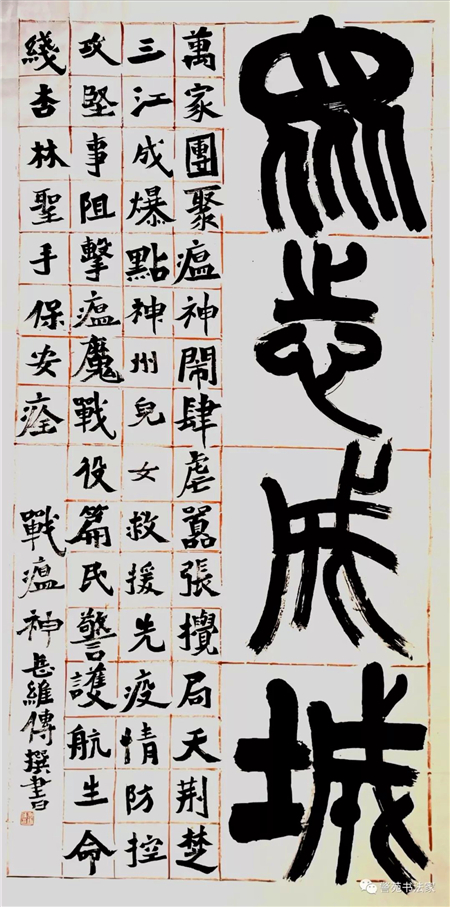 眾志成城
萬家團聚瘟神鬧肆虐囂張攪局天荊楚
三江成爆點神州兒女救援先疫情防控
攻堅事阻擊瘟魔戰役篇民警護航生命
綫杏林聖手保安痊
戰瘟神 維傳撰書
苑书法家